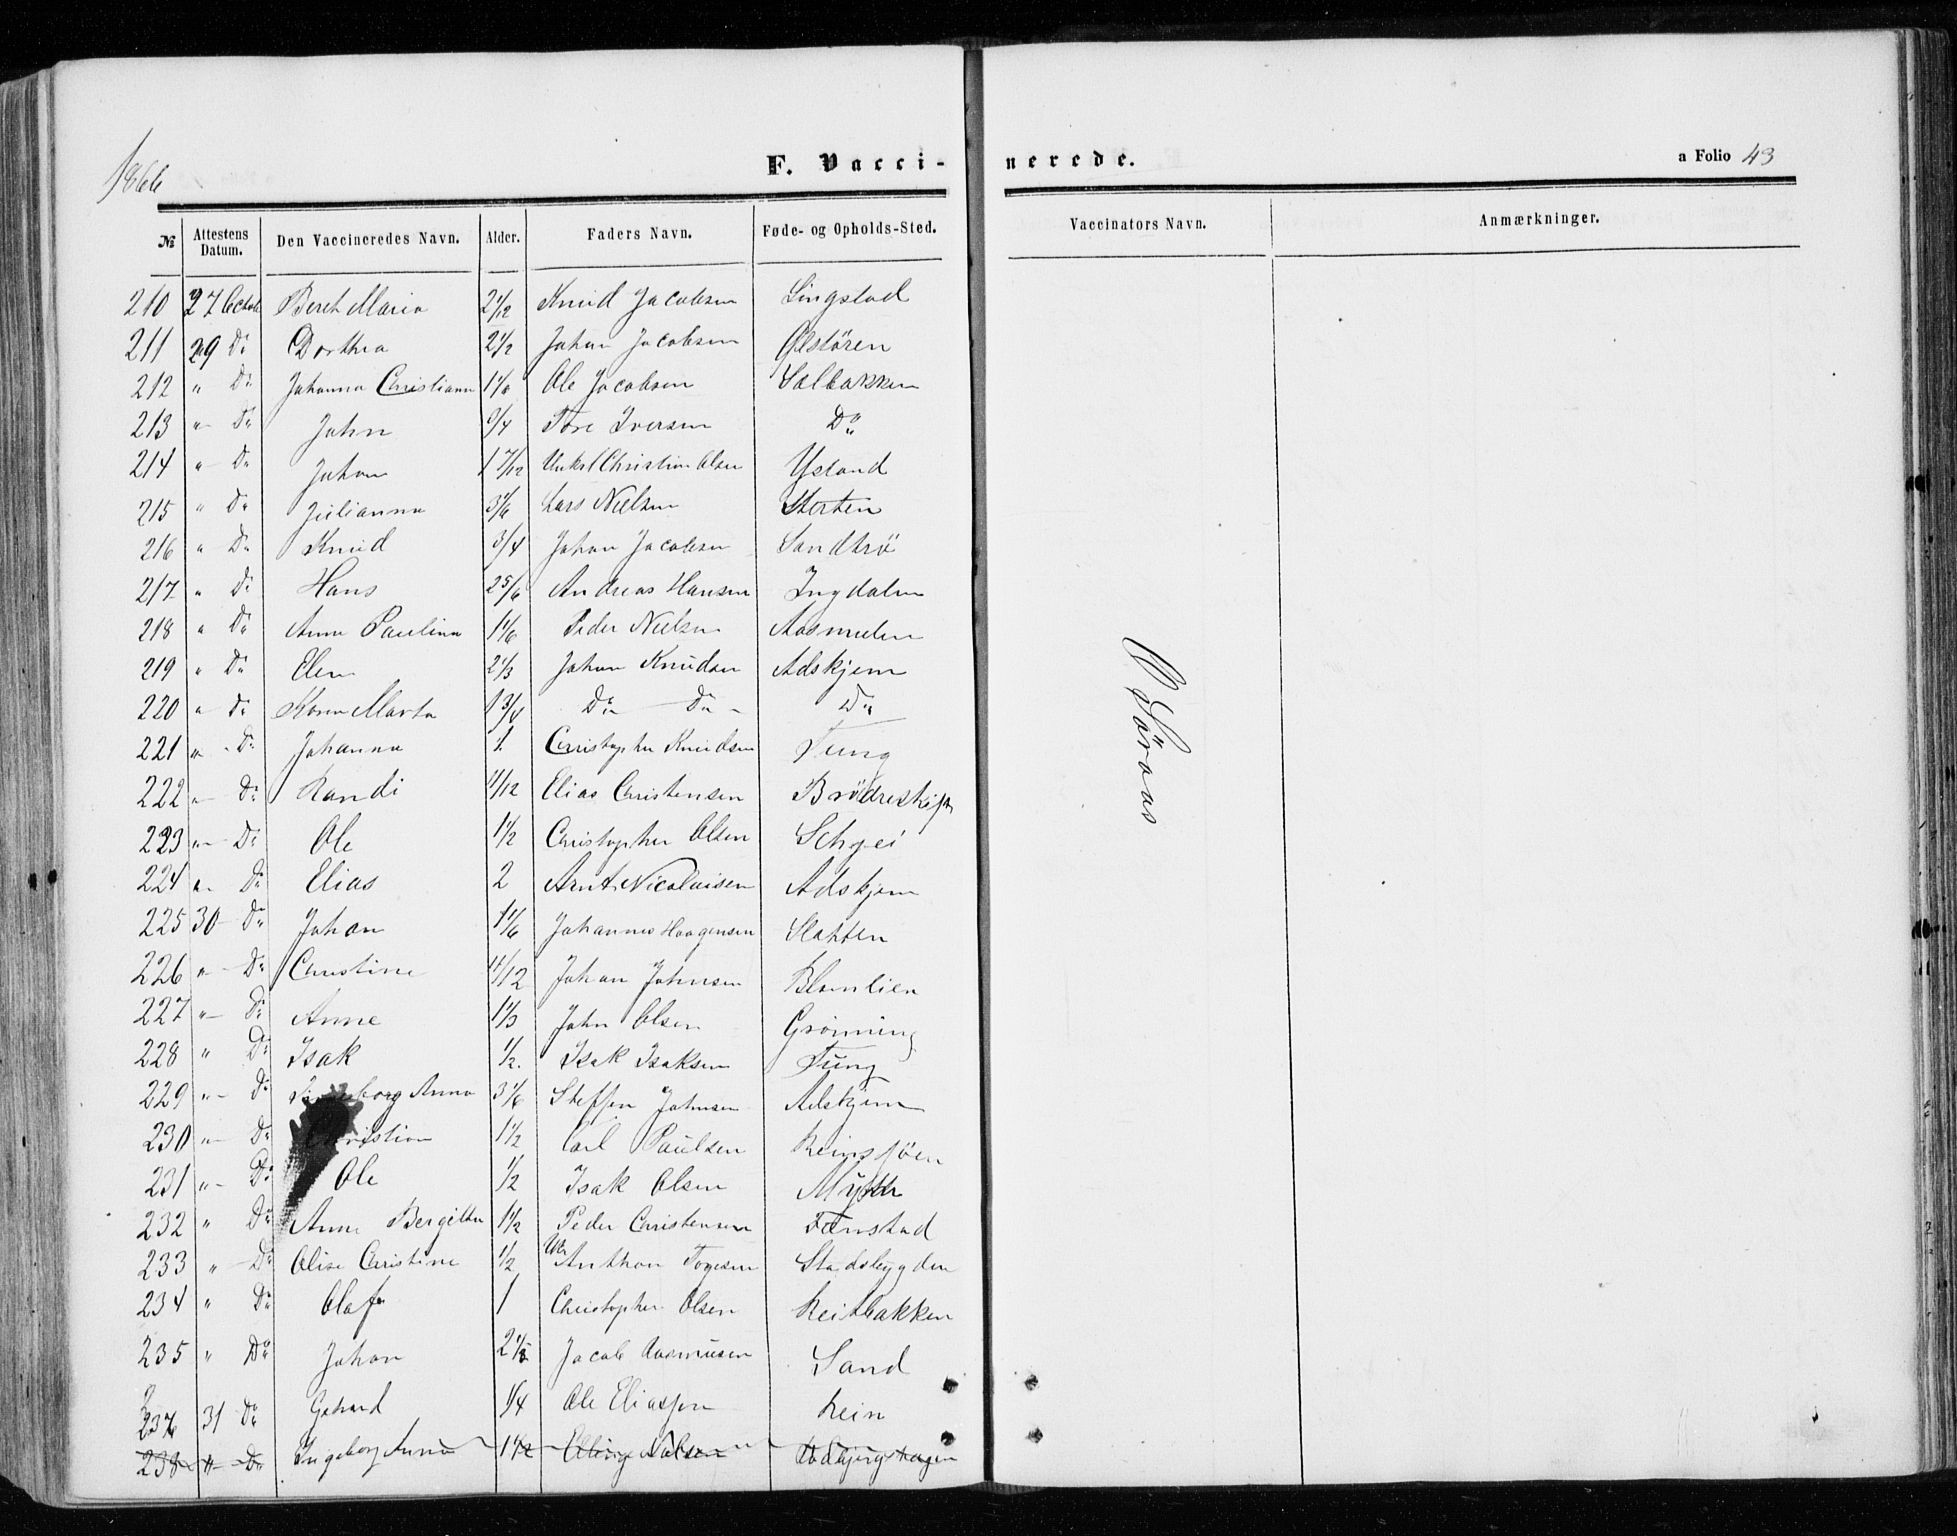 1866
F. Vacci- nerede. a Folio 43
№ Attestens Datum. Den Vaccineredes Navn. Alder. Faders Navn. Føde- og Opholds-Sted. Vaccinators Navn. Anmærkninger.
210 27 Octob Beret Maria 2 1/12 Knud Jacobsen Lingstad
211 29 Do Dorthea 2 1/2 Johan Jacobsen Ølstören
212 " Do Johanna Christiann 1 1/6 Ole Jacobsen Salbakken
213 " Do John /4 Tore Iversen Do
214 " Do Johan 1 7/12 Christian Olsen Ystand
215 " Do Julianna 3 1/6 Lars Nielsen Storten
216 " Do Knud 3/4 Johan Jacobsen Sandbrö
217 " Do Hans 2 5/6 Andreas Hansen Ingdalen
218 " Do Anne Paulina 1 1/6 Peder Nielsen Aasmulen
219 " Do Elen 2 1/3 Johan Knudsen Adskjem
220 " Do Karen Marta 1 3/4 Do Do Do
221 " Do Johanna 1 Christopher Knudsen Tung
222 " Do Randi 11/12 Elias Christensen Brödreskift
223 " Do Ole 1 1/2 Christopher Olsen Schjei
224 " Do Elias 2 Arnt Nicolaisen Adskjem
225 30 Do Johan 1 1/6 Johannes Haagensen Slatten
226 " Do Christine 11/12 Johan Johnsen Blomlien
227 " Do Anne 1 1/3 John Olsen Grönning
228 " Do Isak 1/2. Isak Isaksen Tung
229 " Do Anna 3 1/6 Steffen Johnsen Adskjem
230 " Do Christian 1 1/2 Carl Paulsen Reinsjöen
231 " Do Ole 1/2 Isak Olsen Myhr
232 " Do Anne Bergitta 1 1/2 Peder Christensen Fenstad
233 " Do Olise Christine 1/2 Anthon Torgesen Stadsbygden
234 " Do Olaf 1 Christopher Olsen Reitbakken
235 " Do Johan 2 1/2 Jacob Rasmusen Sand
237 31 Do Gerhard 1/4 Ole Eliassen Rein
238 " Do Ingeborg Anna 1 1/2 Elling Nilsen
O Söraas